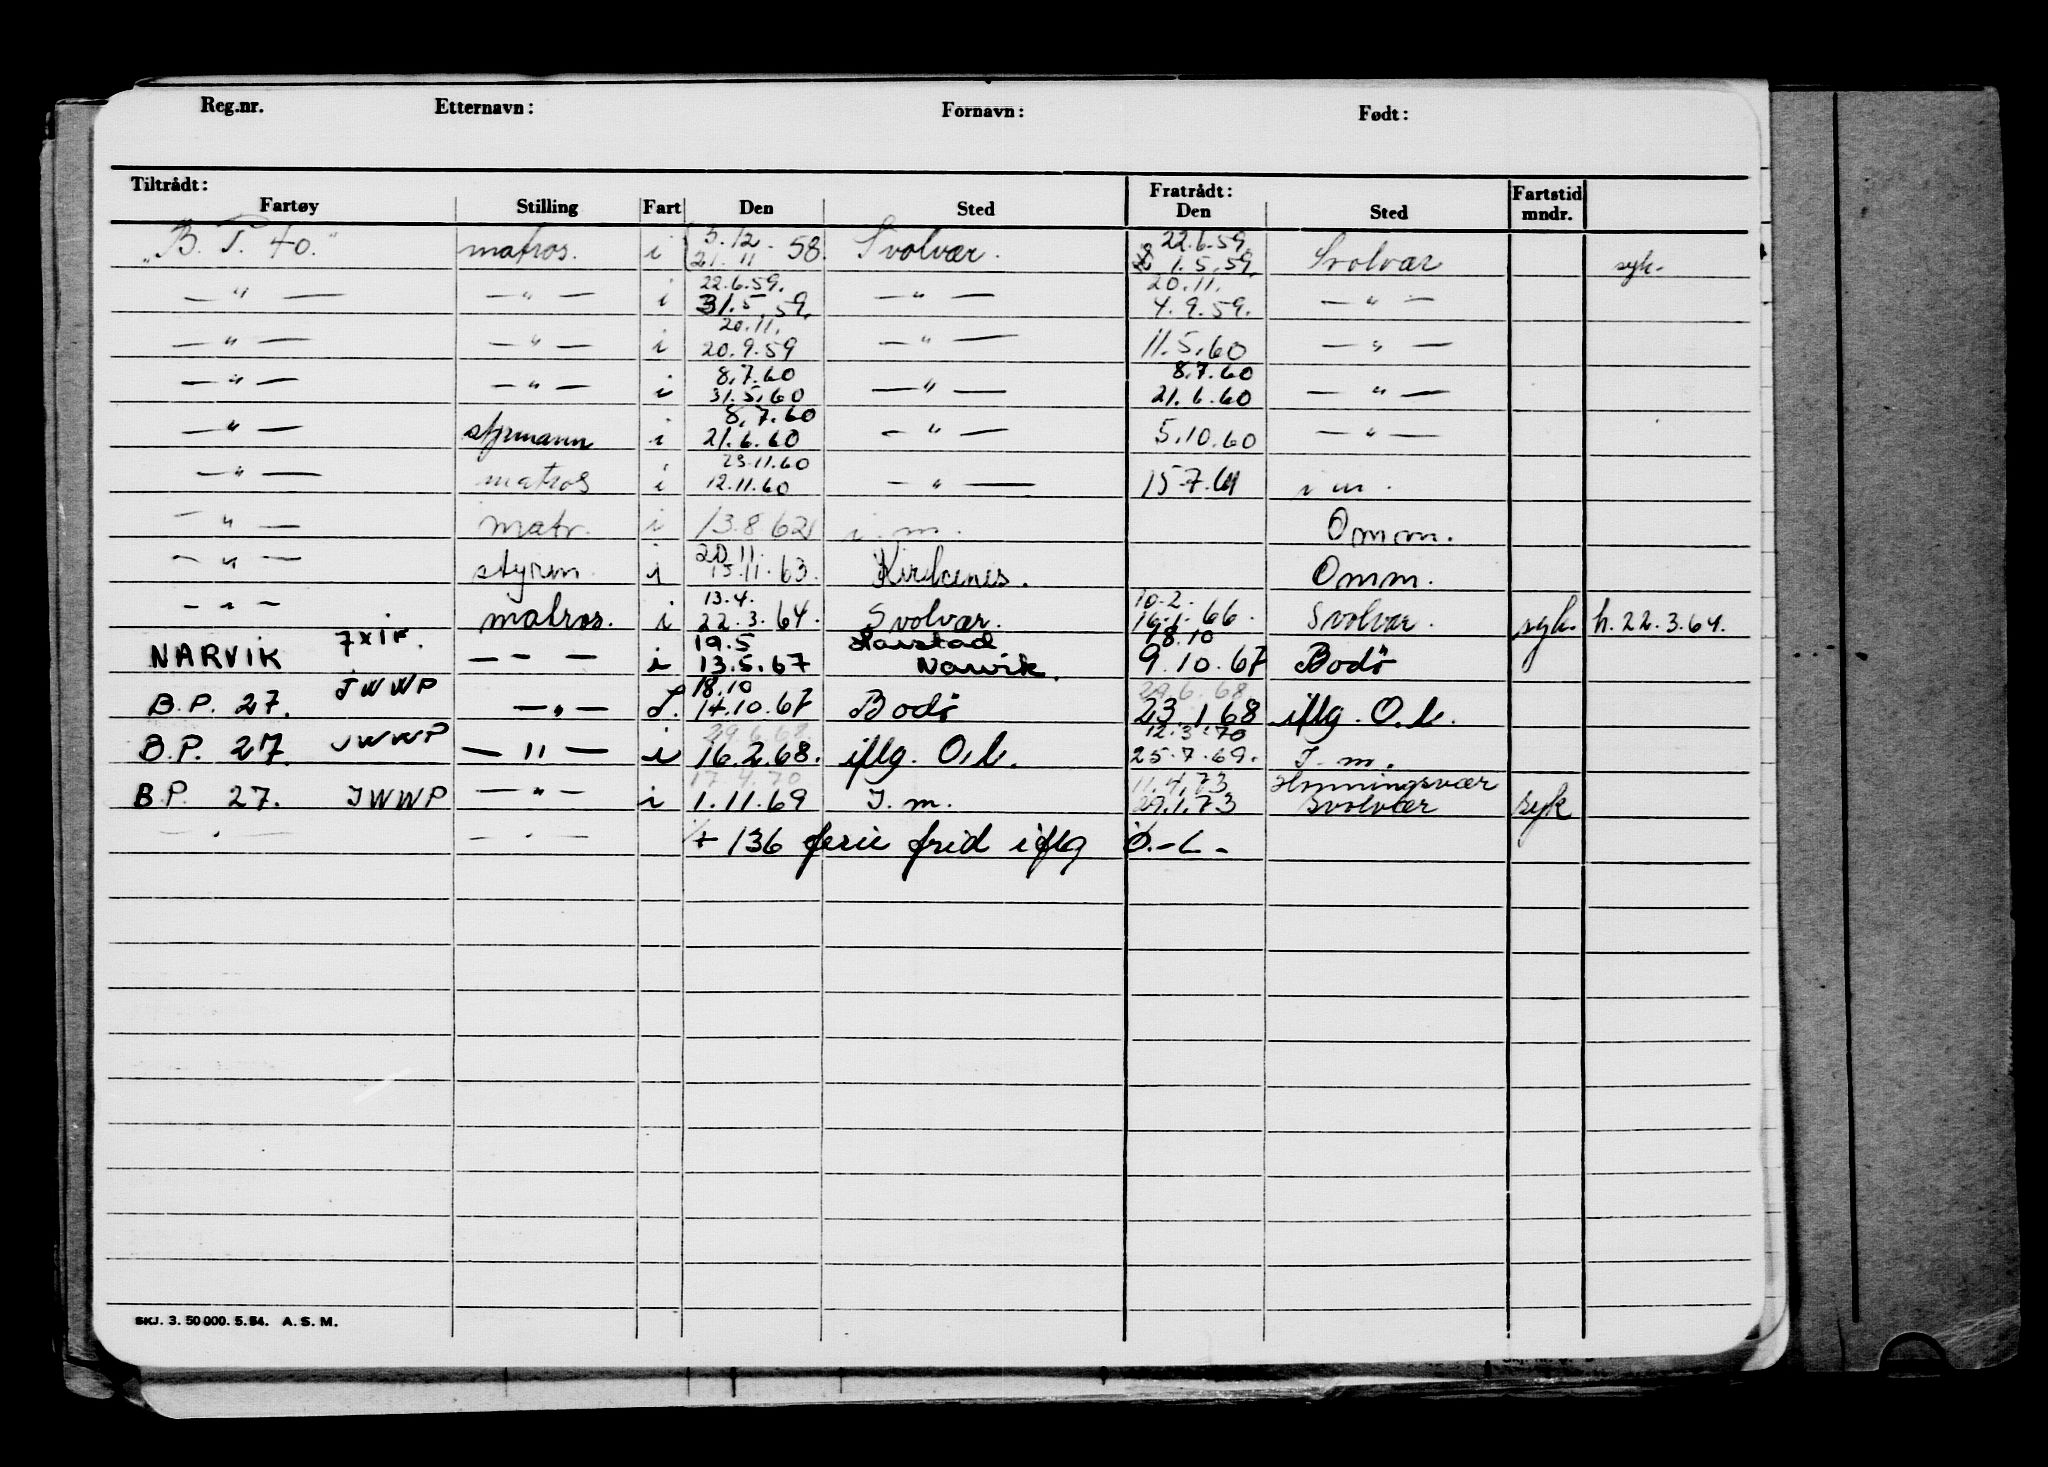 Reg.nr. Etternavn: Fornavn: Født:
Tiltrådt: Fratrådt: Fartstid
Fartøy Stilling Fart Den Sted Den Sted mndr.
3.12 22.6.59.
„B. T. 40." matros. i 21.11 58. Svolvær. 1.5.59. Svolvær syk.
22.6.59. 20.11.
— " — — " — i 31.5.59. — " — 4.9.59. — " —
20.11.
— " — — " — i 20.9.59 — " — 11.5.60 — " —
8.7.60 8.7.60
— " — — " — i 31.5.60 — " — 21.6.60 — " —
8.7.60
— " — styrmann i 21.6.60 — " — 5.10.60 — " —
23.11.60
— " — matros i 12.11.60 — " — 15.7.61 i m.
— " — matr. i 13.8.62 i. m. Omm.
20.11.
— " — styrm. i 15.11.63. Kirkenes. Omm.
13.4. 10.2.
— " — matros. i 22.3.64. Svolvær. 16.1.66. Svolvær. syk. h. 22.3.64.
19.5 Harstad 18.10
NARVIK — " — i 13.5.67 Narvik. 9.10.67 Bodö
JWWP 18.10 29.6.68.
B.P. 27. — " — 14.10.67 Bodö 23.1.68 iflg. O.l.
29.6.68. 12.3.70
B.P. 27. JWWP — " — i 16.2.68. iflg. O.l. 25.7.69. I. m.
17.4.70 11.4.73 Henningsvær
B.P. 27. JWWP — " — i 1.11.69 I. m. 29.1.73 Svolvær syk
— " — — " — + 136 ferie frid iflg O.-L-
SKJ. 3. 50 000. 5.54. A. S. M.